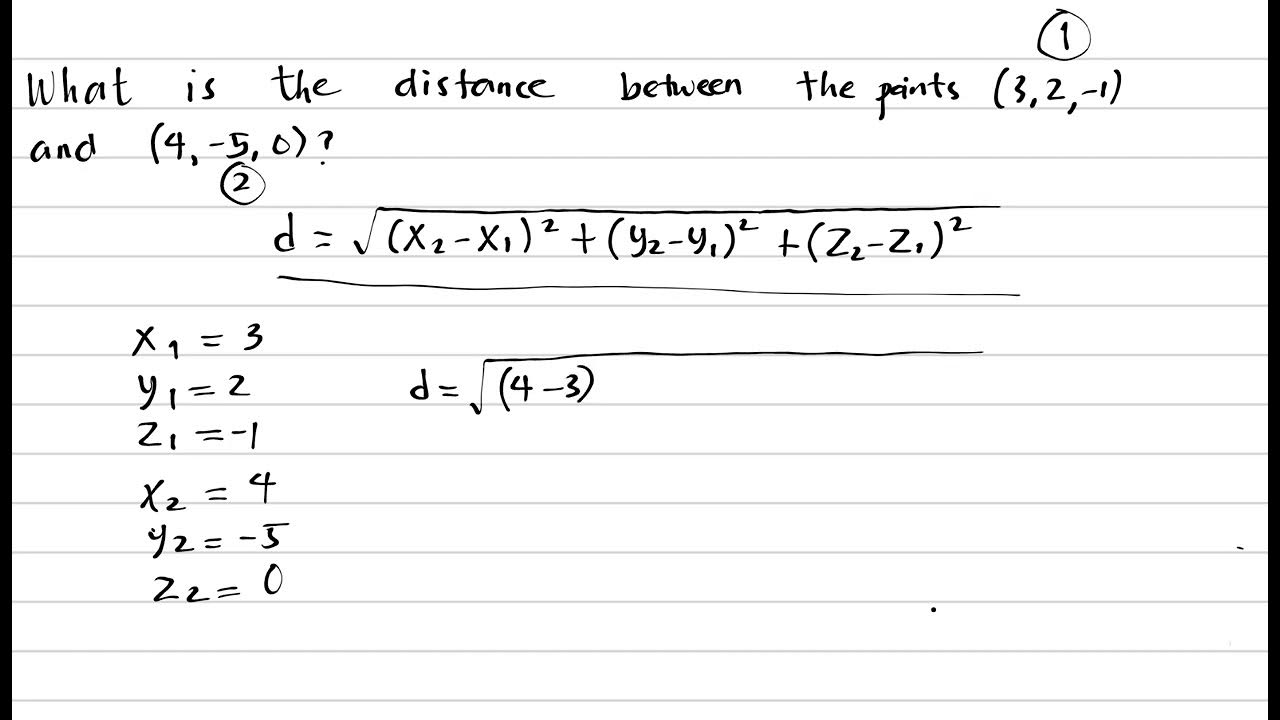 ①
What is the distance between the points (3, 2, -1)
and (4, -5, 0)?
②
d = √(x₂ - x₁)² + (y₂ - y₁)² + (z₂ - z₁)²
x₁ = 3
y₁ = 2
d = √(4 - 3)
z₁ = -1
x₂ = 4
y₂ = -5
z₂ = 0